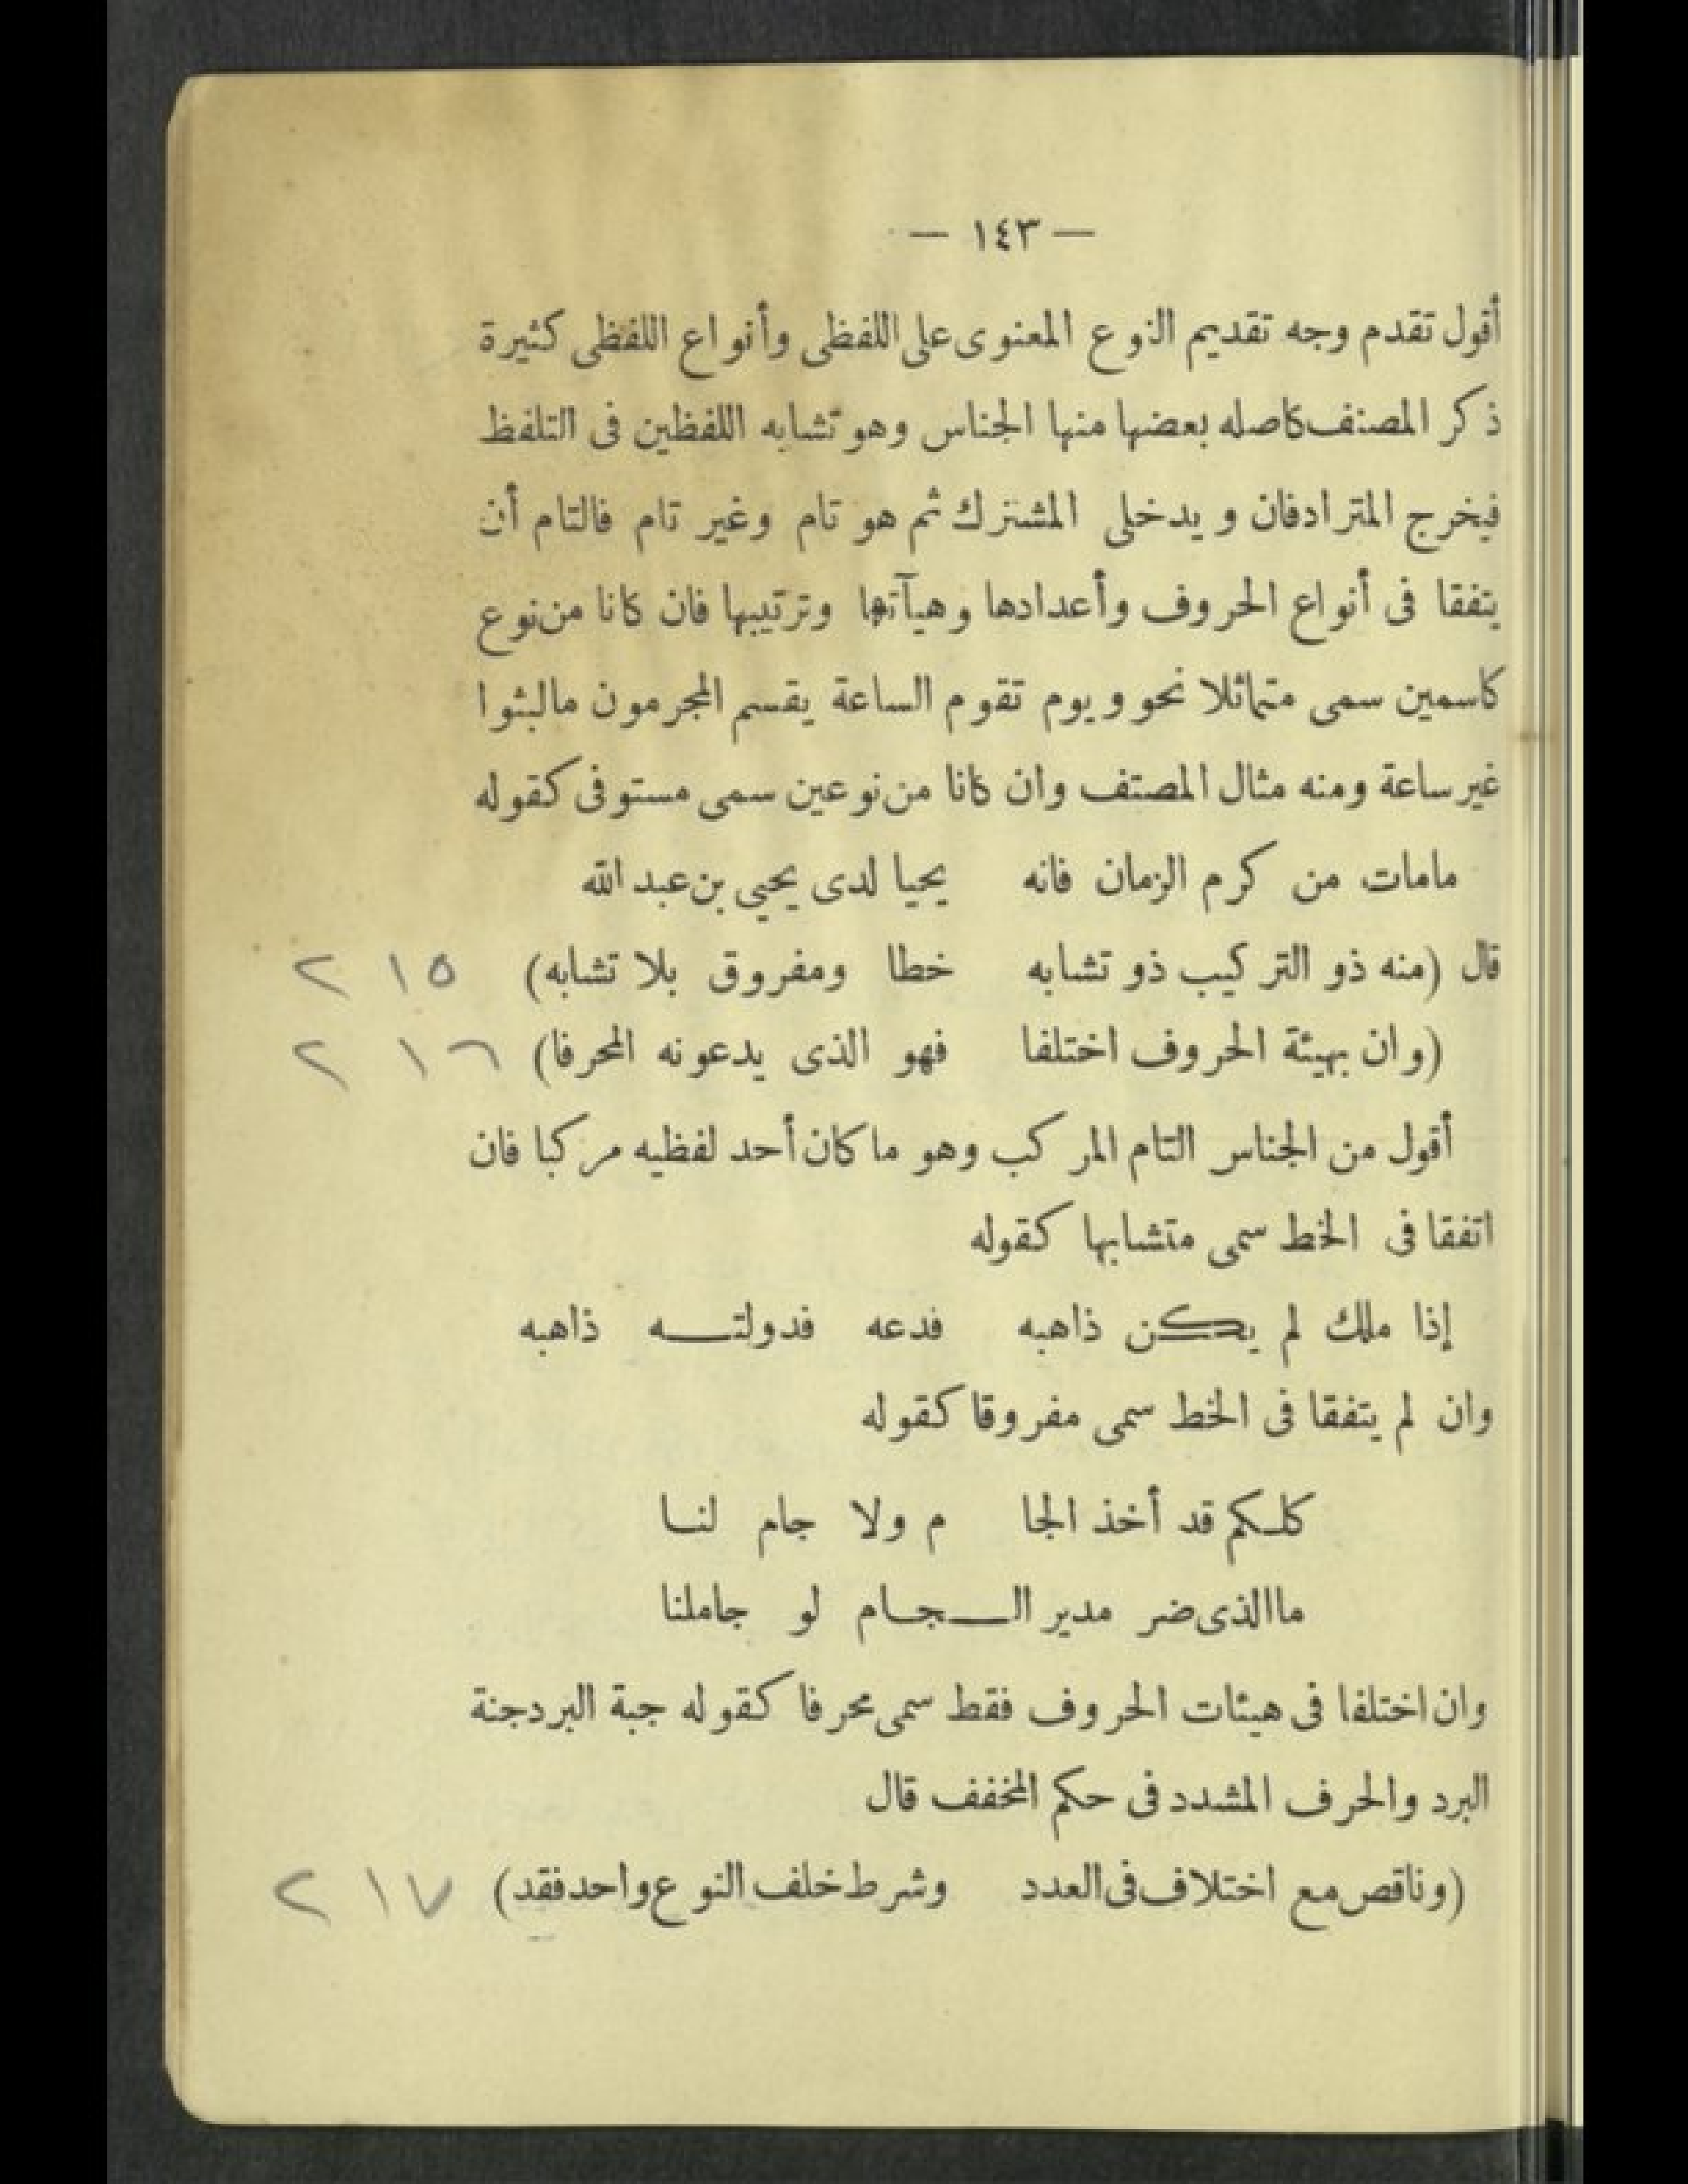 — ١٤٣ —
أقول تقدم وجه تقديم النوع المعنوى على اللفظى وأنواع اللفظى كثيرة
ذكر المصنف كاصله بعضها منها الجناس وهو تشابه اللفظين فى التلفظ
فيخرج المترادفان ويدخل المشترك ثم هو تام وغير تام فالتام أن
يتفقا فى أنواع الحروف وأعدادها وهيآتها وترتيبها فان كانا من نوع
كاسمين سمى متماثلا نحو ويوم تقوم الساعة يقسم المجرمون مالبثوا
غير ساعة ومنه مثال المصتف وان كانا من نوعين سمى مستوفى كقوله
مامات من كرم الزمان فانه يحيا لدى يحيي بن عبد الله
قال (منه ذو التركيب ذو تشابه خطا ومفروق بلا تشابه) ٢١٥
(وان بهيئة الحروف اختلفا فهو الذى يدعونه المحرفا) ٢١٦
أقول من الجناس التام المركب وهو ما كان أحد لفظيه مركبا فان
اتفقا فى الخط سمى متشابها كقوله
إذا ملك لم يكن ذاهبه فدعه فدولتـــه ذاهبه
وان لم يتفقا فى الخط سمى مفروقا كقوله
كلـكم قد أخذ الجا م ولا جام لنـا
ما الذى ضر مدير الـــجـــام لو جاملنا
وان اختلفا فى هيئات الحروف فقط سمى محرفا كقوله جبة البرد جنة
البرد والحرف المشدد فى حكم المخفف قال
(وناقص مع اختلاف فى العدد وشرط خلف النوع واحد فقد) ٢١٧